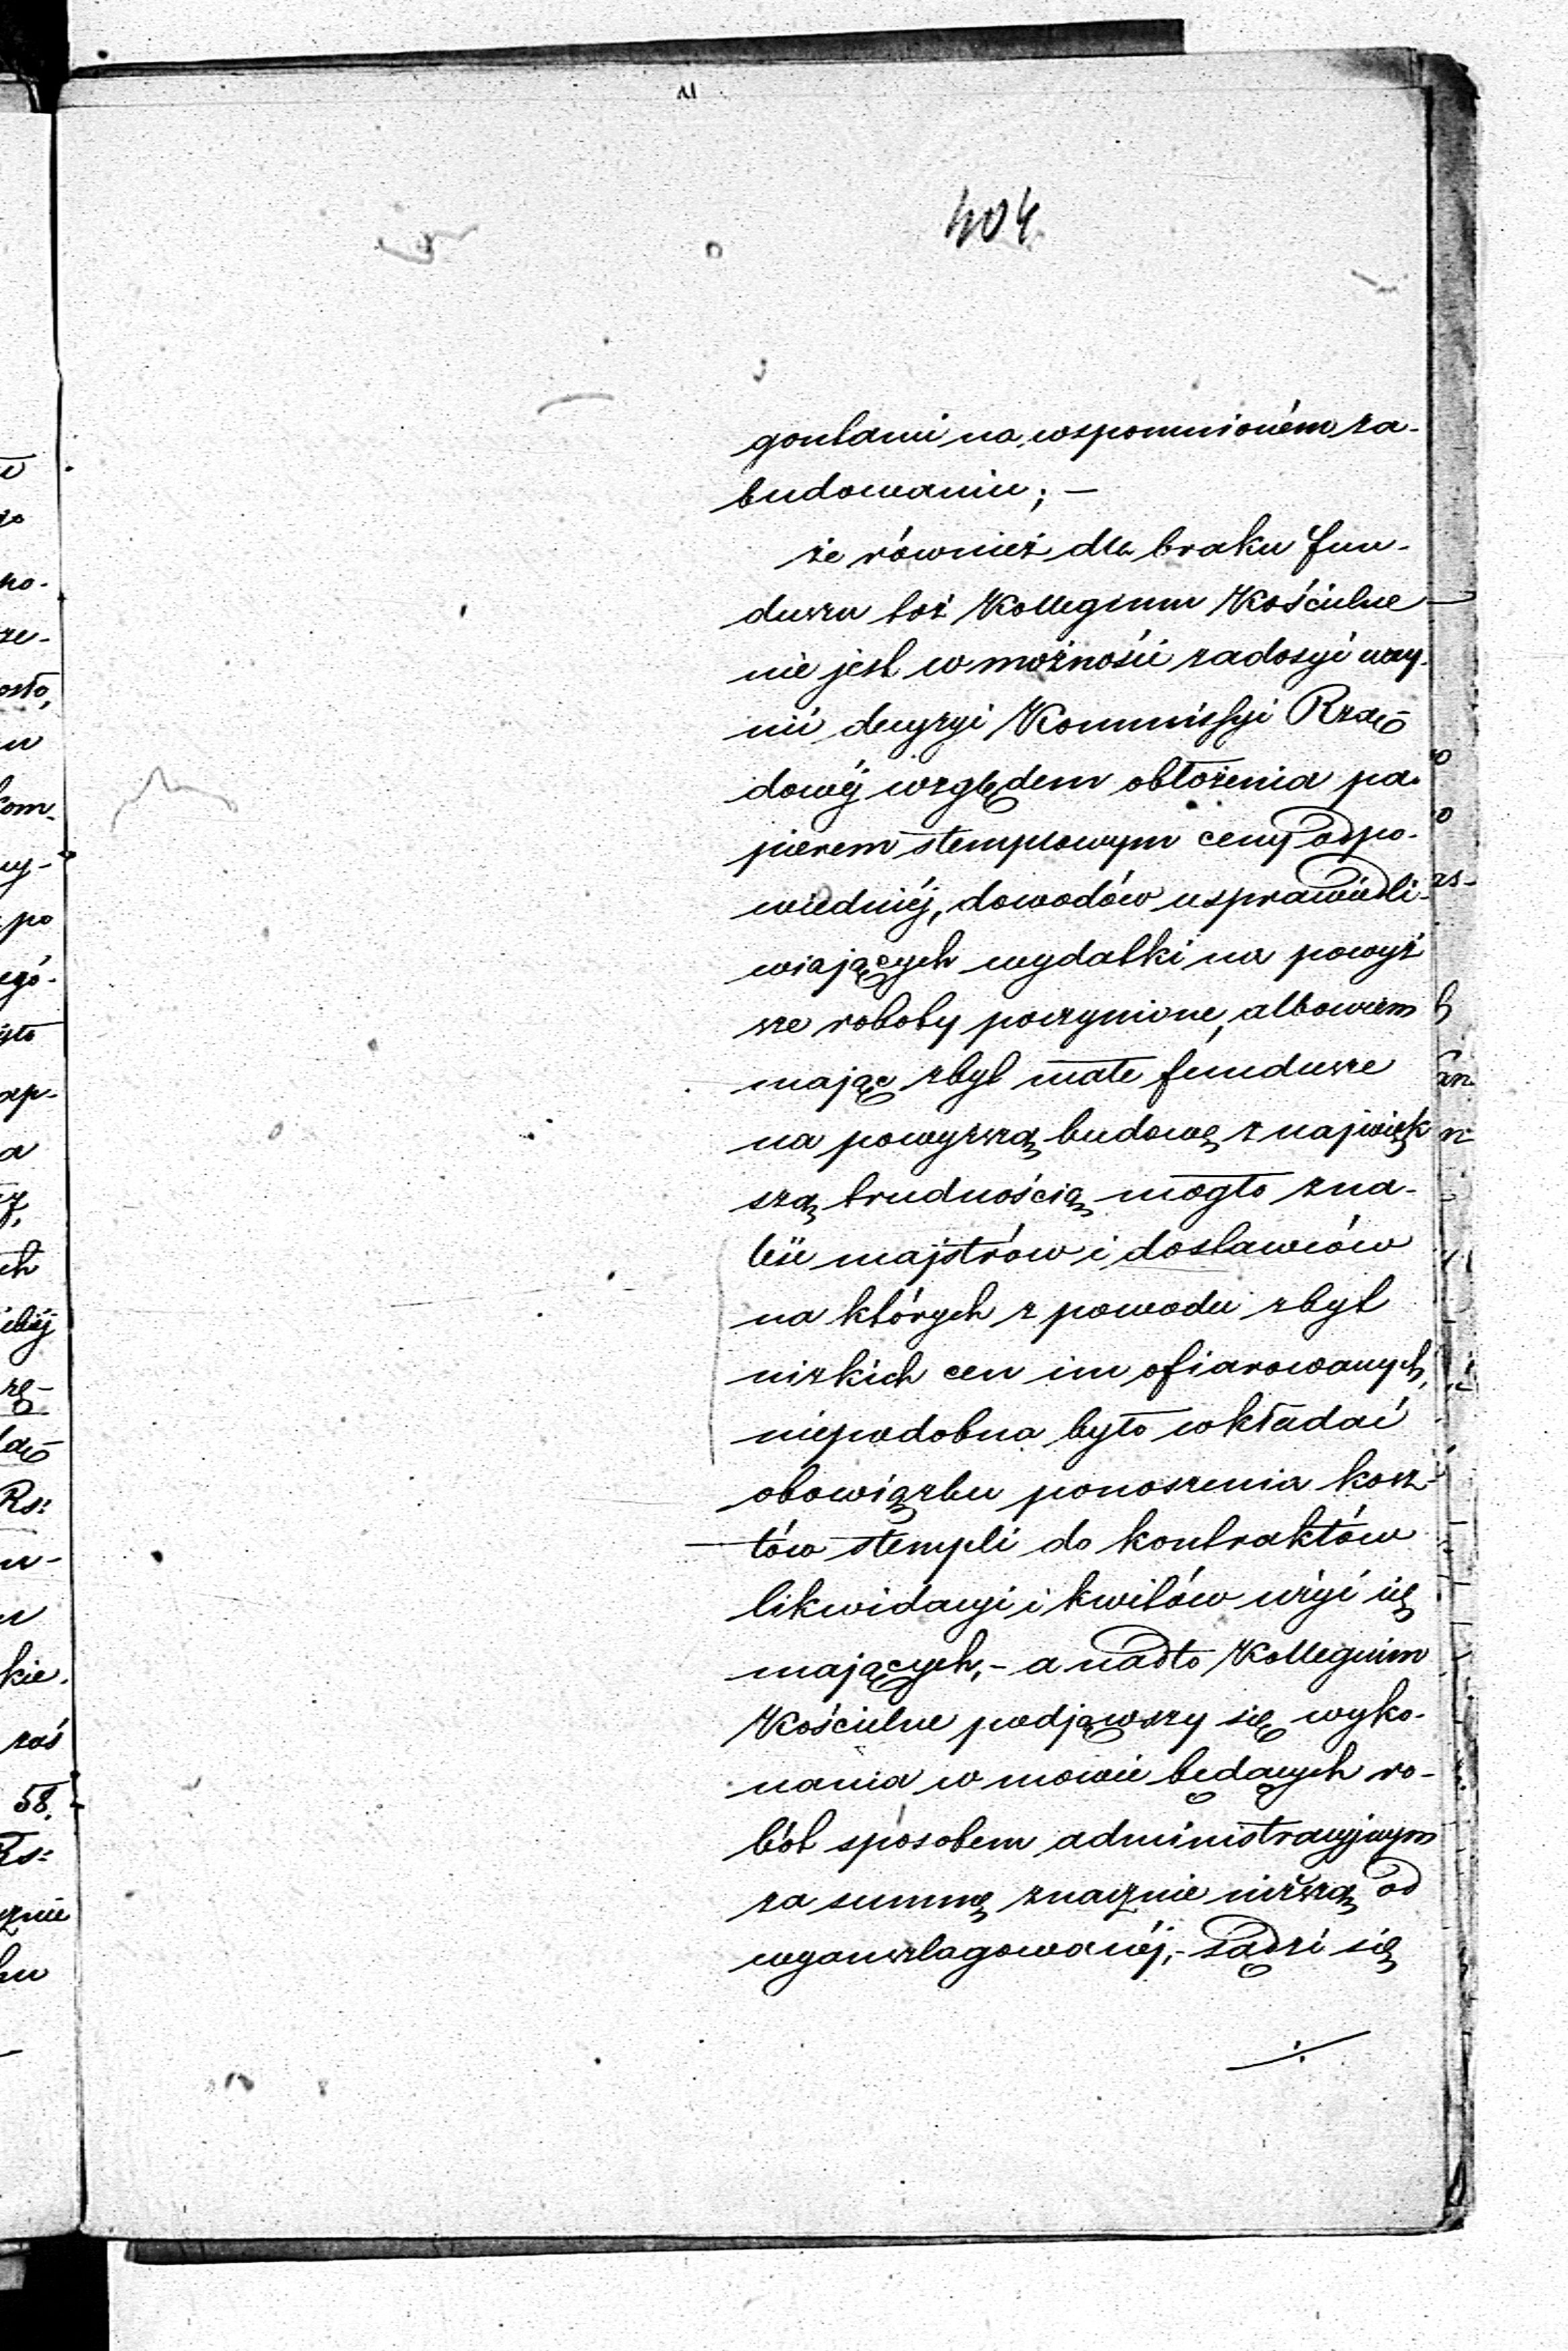 404
gontami na wspomnioném za-
budowaniu; —
że również dla braku fun-
duszu toż Kollegium Kościelne
nie jest w możności zadosyć uczy-
nić decyzyi Kommissyi Rzą-
dowéj względem obłożenia pa-
pierem stemplowym ceny odpo-
wiedniéj, dowodów usprawiedli-
wiających wydatki na powyż
sze roboty poczynione, albowiem
mając zbyt małe fundusze
na powyższą budowę z najwięk
szą trudnością mogło zna-
leść majstrów i dostawców
na których z powodu zbyt
nizkich cen im ofiarowanych,
niepodobna było wkładać
obowiązku ponoszenia kosz-
tów stempli do kontraktów
likwidacyi i kwitów użyć się
mających, - a nadto Kollegium
Kościelne podjąwszy się wyko-
nania w mowie będących ro-
bót sposobem administracyjnym
za summę znacznie niższą od
wyanszlagowanéj, - sądzi się
./.